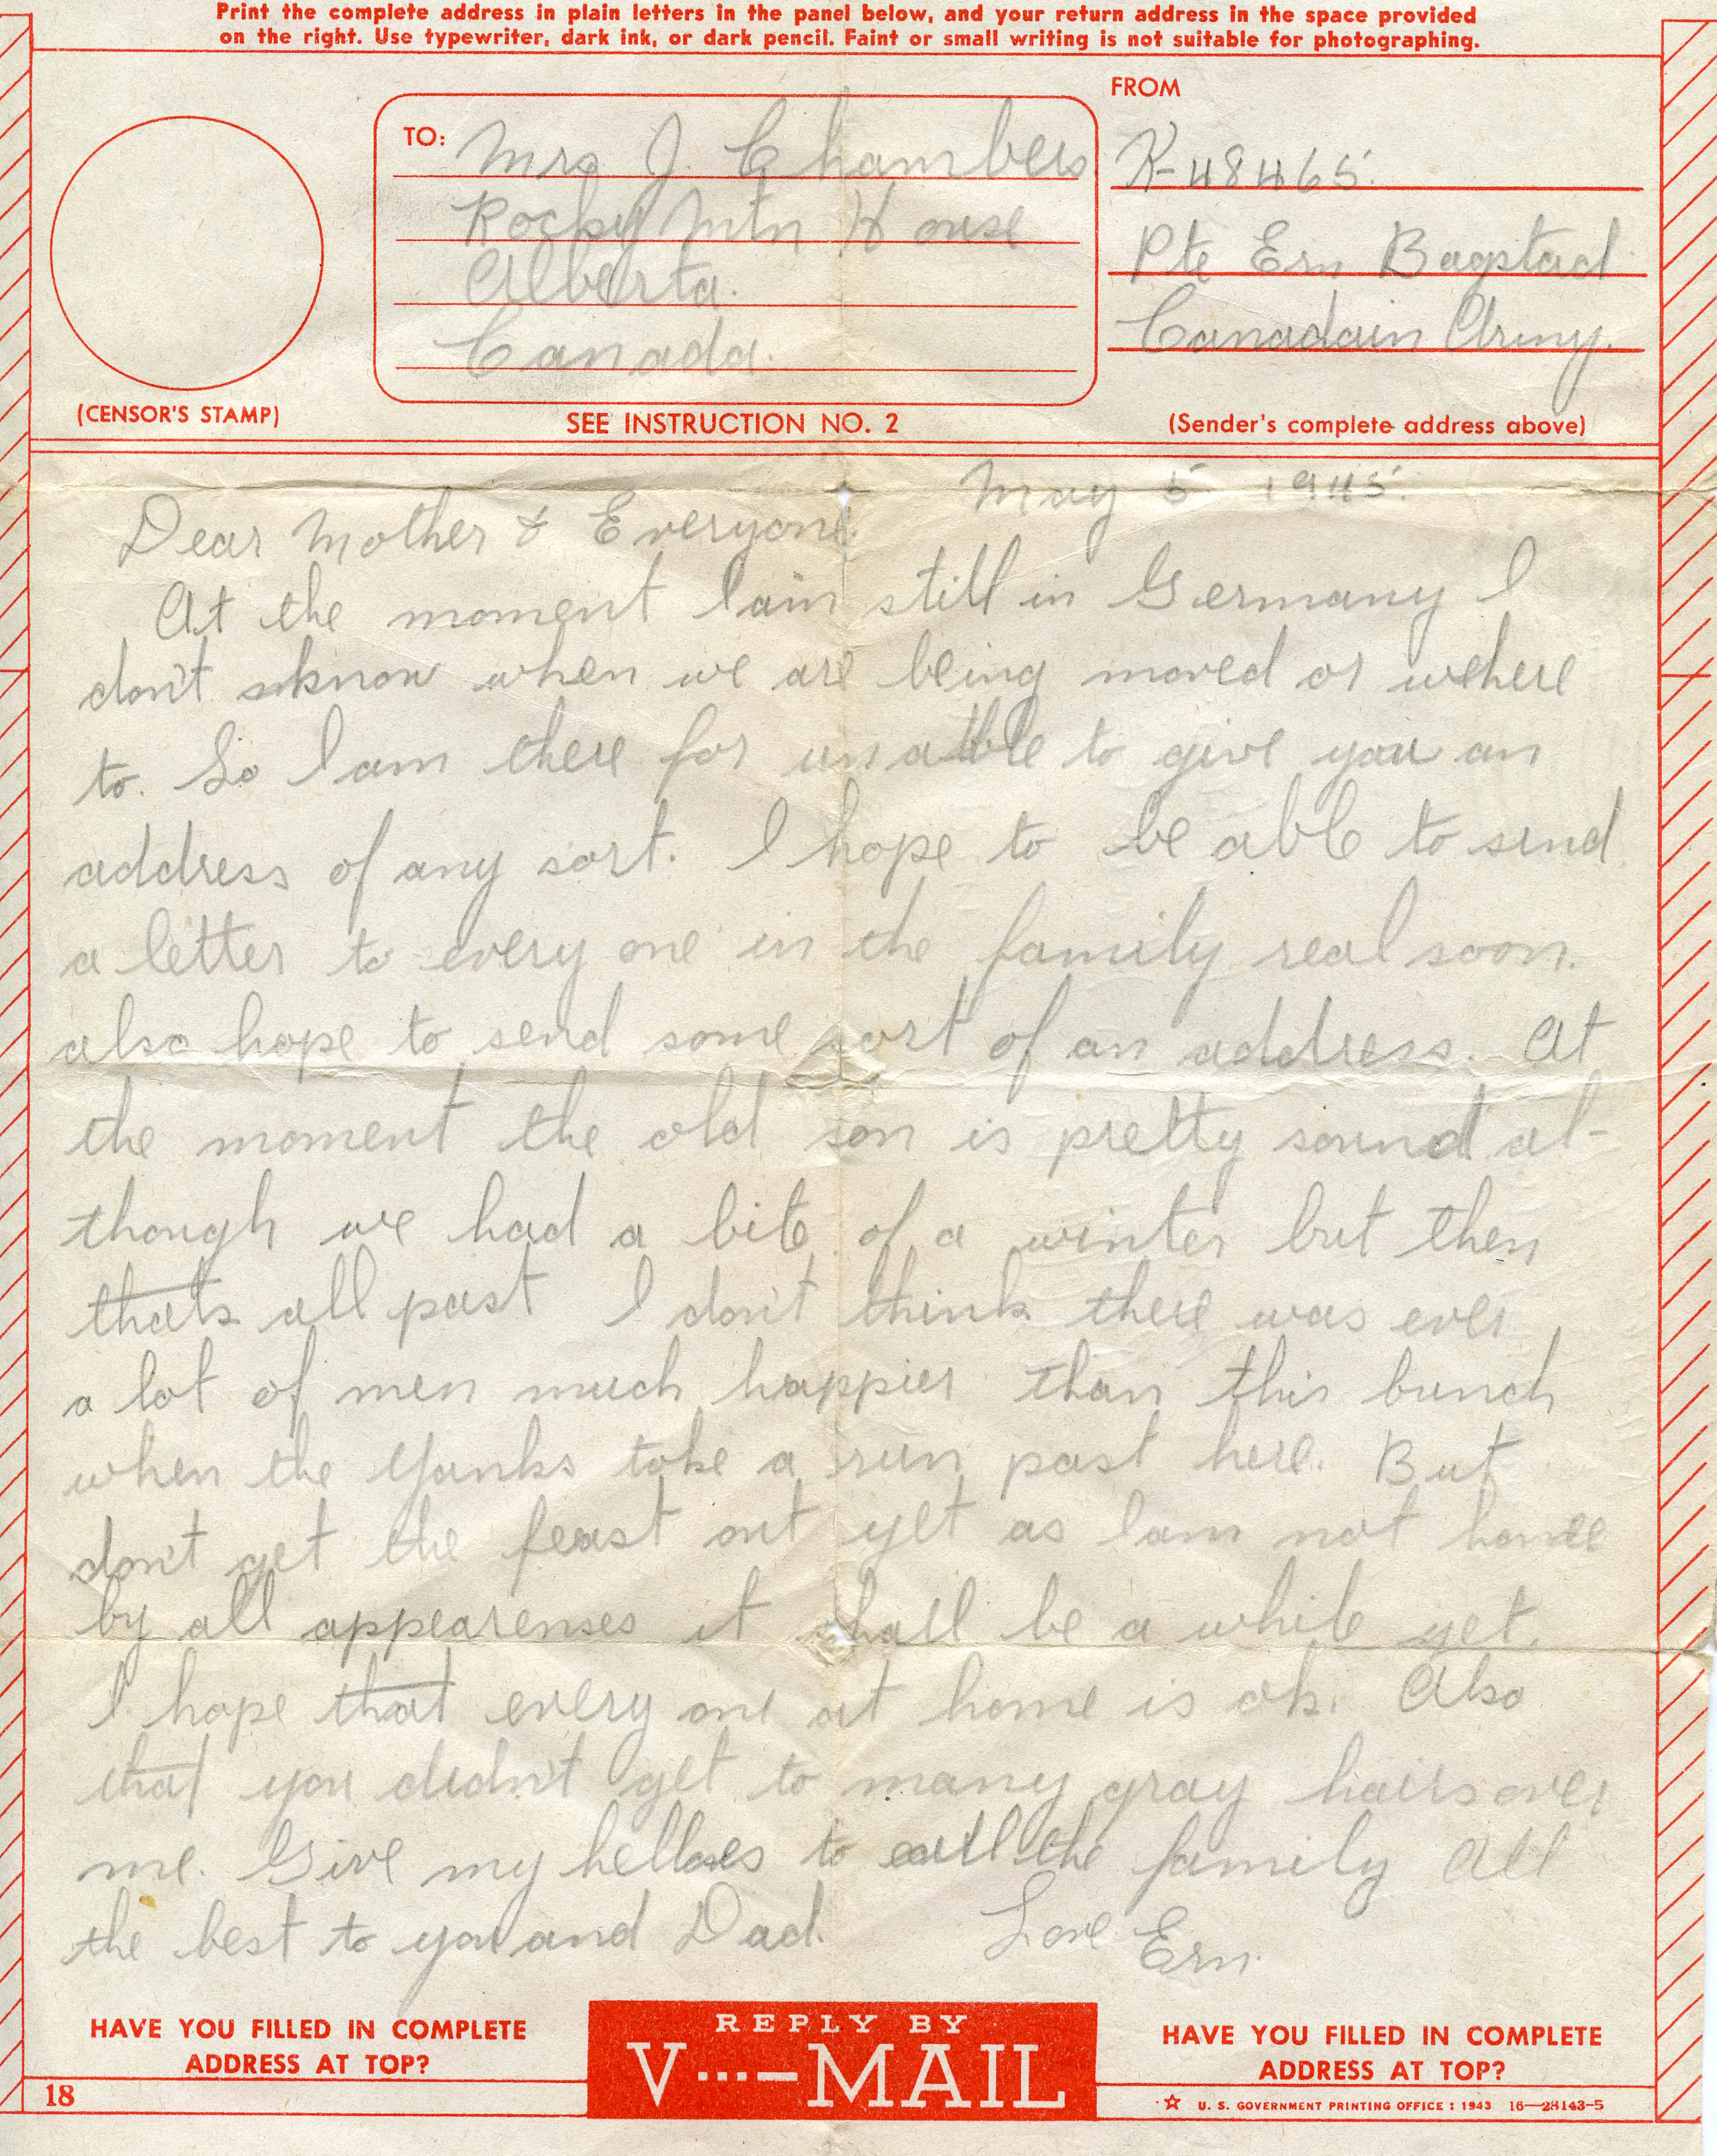 Print the complete address in plain letters in the panel below, and your return address in the space provided
on the right. Use typewriter, dark ink, or dark pencil. Faint or small writing is not suitable for photographing.
FROM
TO: Mrs J. Chambers
Rocky Mtn House
Alberta.
Canada.
K-48465.
Pte Ern Bagstad
Canadain Army.
(CENSOR'S STAMP)
SEE INSTRUCTION NO. 2
(Sender's complete address above)
May 5 1945.
Dear Mother & Everyone.
At the moment I am still in Germany I
don't know when we are being moved or where
to. So I am there for unable to give you an
address of any sort. I hope to be able to send
a letter to every one in the family real soon.
also hope to send some sort of an address. At
the moment the old son is pretty sound al-
though we had a bit of a winter but then
thats all past I don't think there was ever
a lot of men much happier than this bunch
when the Yanks take a run past here. But
don't get the feast out yet as I am not home
by all appearenses it shall be a while yet.
I hope that every one at home is ok. Also
that you didn't get to many gray hairs over
me. Give my helloes to all the family All
the best to you and Dad.
Love Ern.
HAVE YOU FILLED IN COMPLETE
ADDRESS AT TOP?
REPLY BY
V···—MAIL
HAVE YOU FILLED IN COMPLETE
ADDRESS AT TOP?
18
☆ U. S. GOVERNMENT PRINTING OFFICE : 1943 16—28143-5